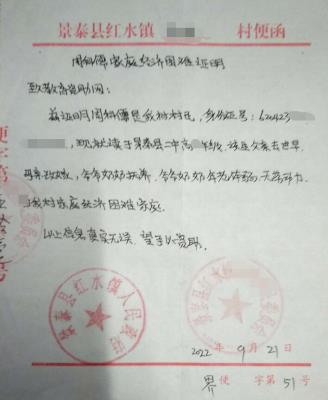 景泰县红水镇 村便函
周 傅家庭经济困难证明
致教育资助网：
兹证明周 傅是我村村民，身份证号：620423
，现就读于景泰县二中高 年级，该生父亲去世早，
母亲改嫁，爷爷奶奶抚养，爷爷奶奶年老体弱，无劳动力
，我村家庭经济困难家庭。
以上信息真实无误，望予以资助。
景泰县红水镇人民政府
景泰县红水镇 委员会
2022年9月21日
界便 字第51号